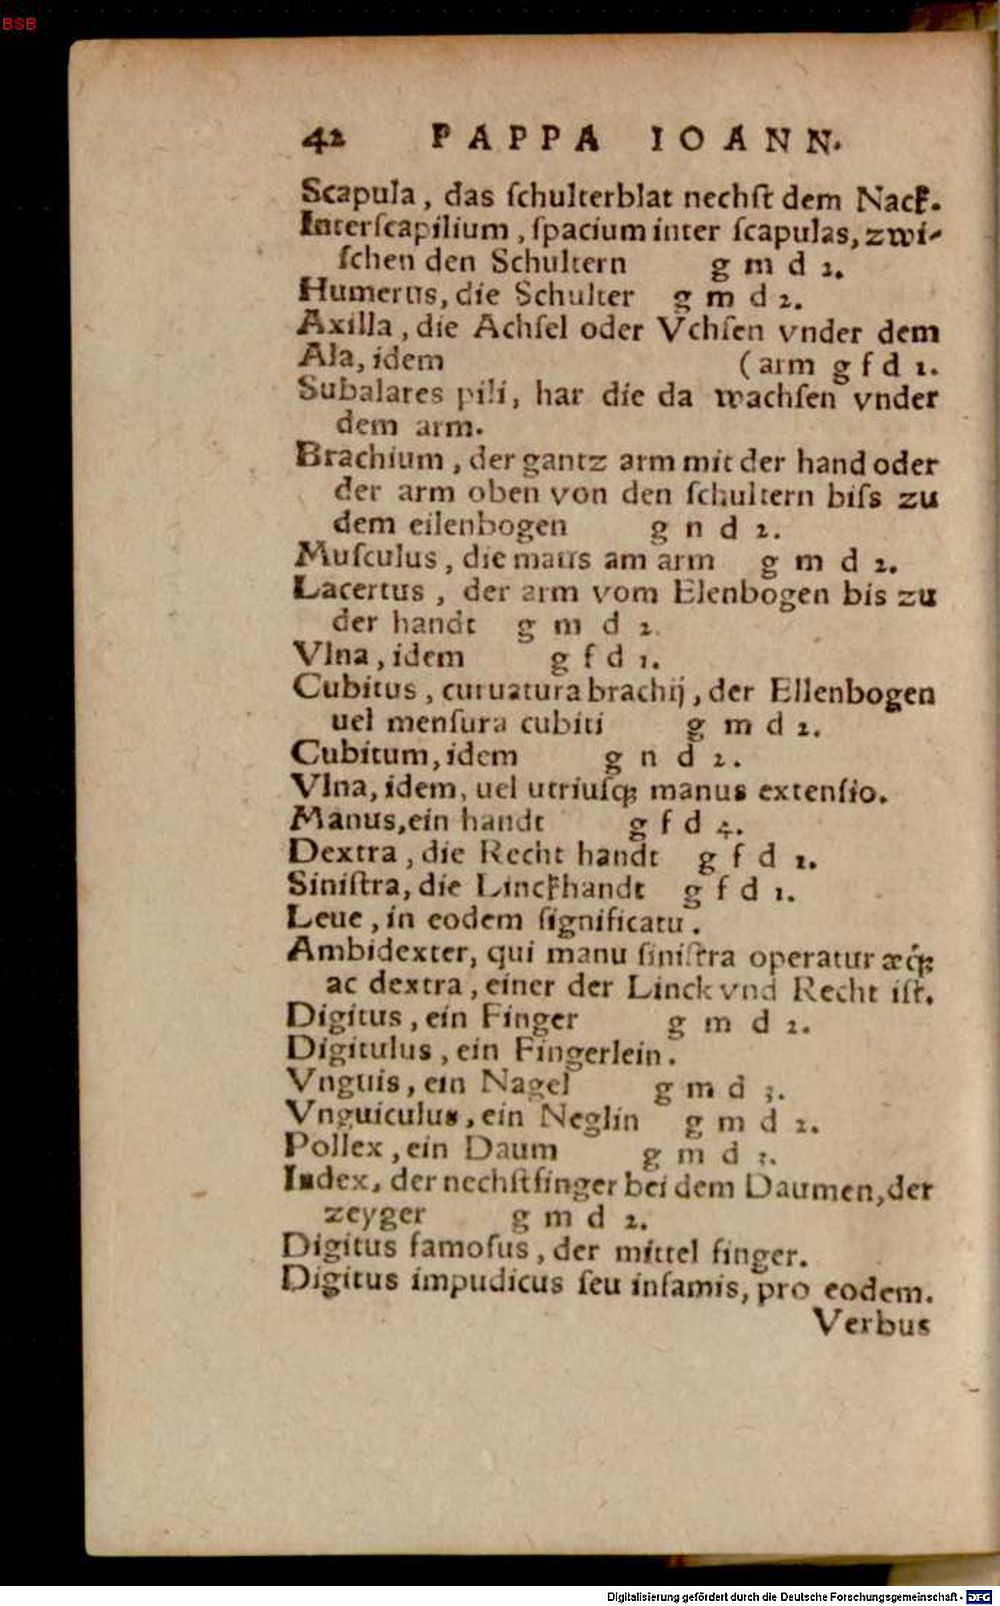 BSB
42 PAPPA IOANN.
Scapula, das ſchulterblat nechſt dem Nack.
Interſcapilium, ſpacium inter ſcapulas, zwi-
ſchen den Schultern g m d 2.
Humerus, die Schulter g m d 2.
Axilla, die Achſel oder Vchſen vnder dem
Ala, idem (arm g f d 1.
Subalares pili, har die da wachſen vnder
dem arm.
Brachium, der gantz arm mit der hand oder
der arm oben von den ſchultern biſs zu
dem eilenbogen g n d 2.
Muſculus, die maus am arm g m d 2.
Lacertus, der arm vom Elenbogen bis zu
der handt g m d 2.
Vlna, idem g f d 1.
Cubitus, curuatura brachij, der Ellenbogen
uel menſura cubiti g m d 2.
Cubitum, idem g n d 2.
Vlna, idem, uel utriuſqꝫ manus extenſio.
Manus, ein handt g f d 4.
Dextra, die Recht handt g f d 1.
Siniſtra, die Linckhandt g f d 1.
Leue, in eodem ſignificatu.
Ambidexter, qui manu ſiniſtra operatur æq́ꝫ
ac dextra, einer der Linck vnd Recht iſt.
Digitus, ein Finger g m d 2.
Digitulus, ein Fingerlein.
Vnguis, ein Nagel g m d 3.
Vnguiculus, ein Neglin g m d 2.
Pollex, ein Daum g m d 3.
Index, der nechſtfinger bei dem Daumen, der
zeyger g m d 2.
Digitus famoſus, der mittel finger.
Digitus impudicus ſeu infamis, pro eodem.
Verbus
Digitalisierung gefördert durch die Deutsche Forschungsgemeinschaft - DFG